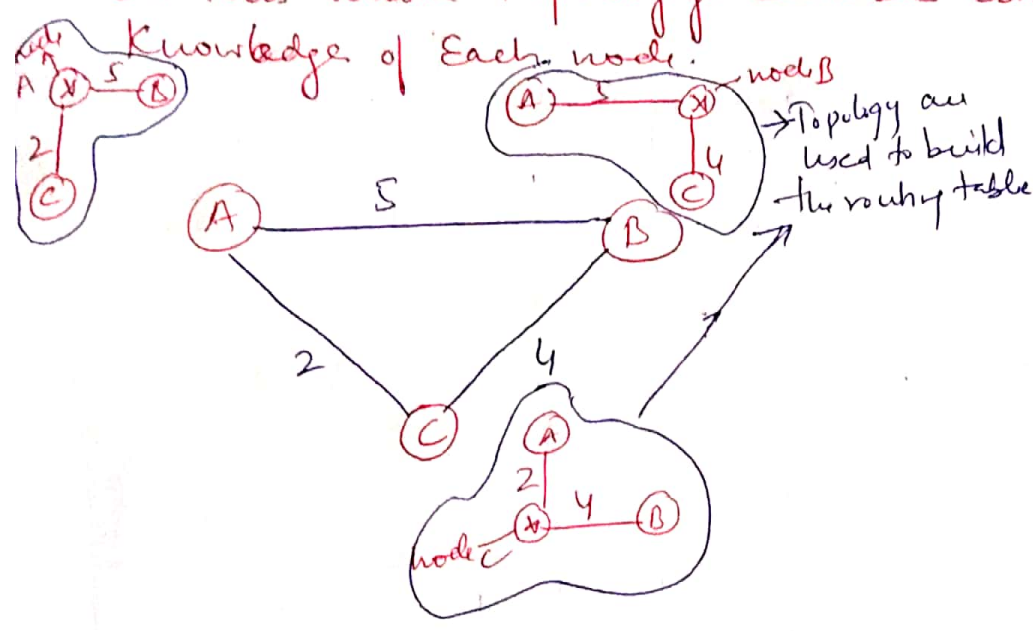 Knowledge of Each node.
node
A
5
B
2
C
A
5
node B
4
C
→Topology are
used to build
the routing table
A
5
B
2
4
C
A
2
4
B
node C